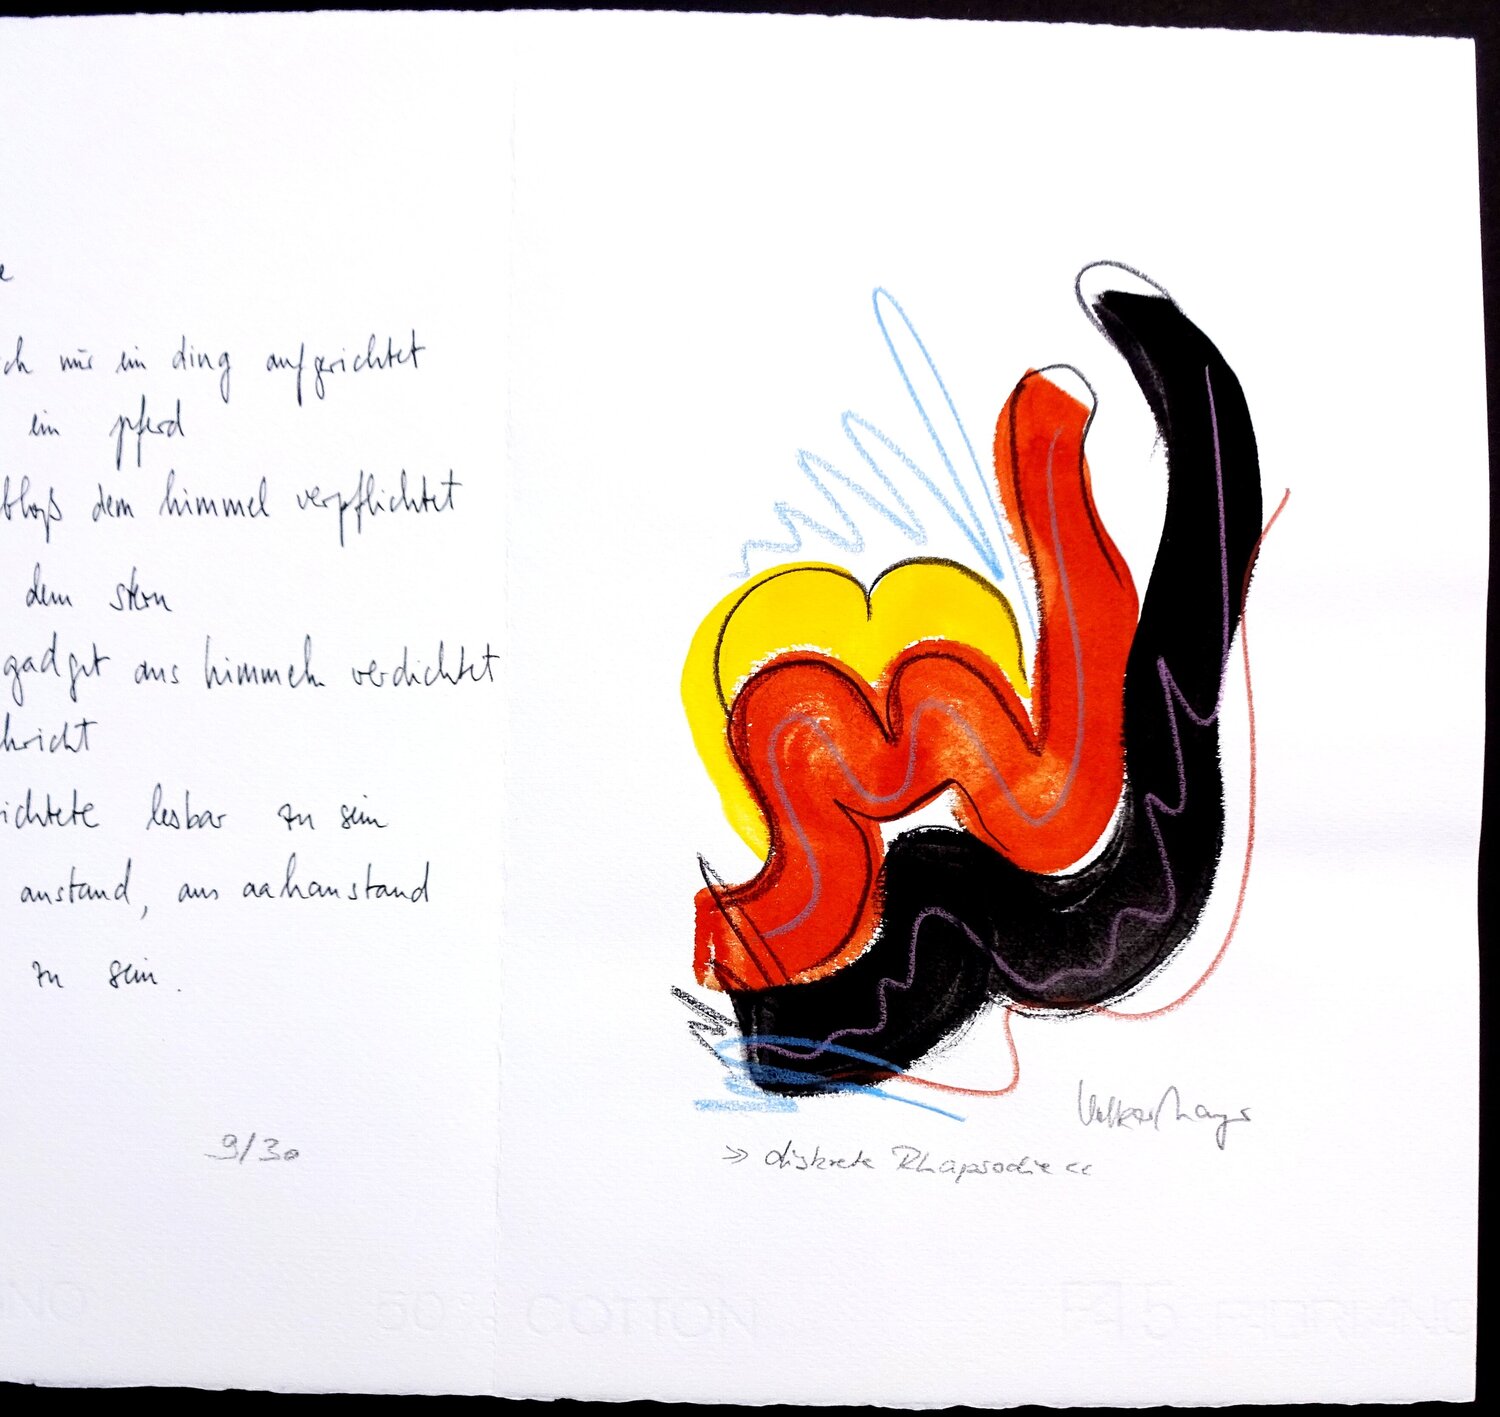 e
ch mir ein ding aufgerichtet
ein pferd
bloß dem himmel verpflichtet
dem stern
gadget aus himmeln verdichtet
hricht
ichtete lesbar zu sein
anstand, aus
zu sein.
9/30
Volker Mayr
» diskrete Rhapsodie «
NO
50% COTTON
F5 FABRIANO